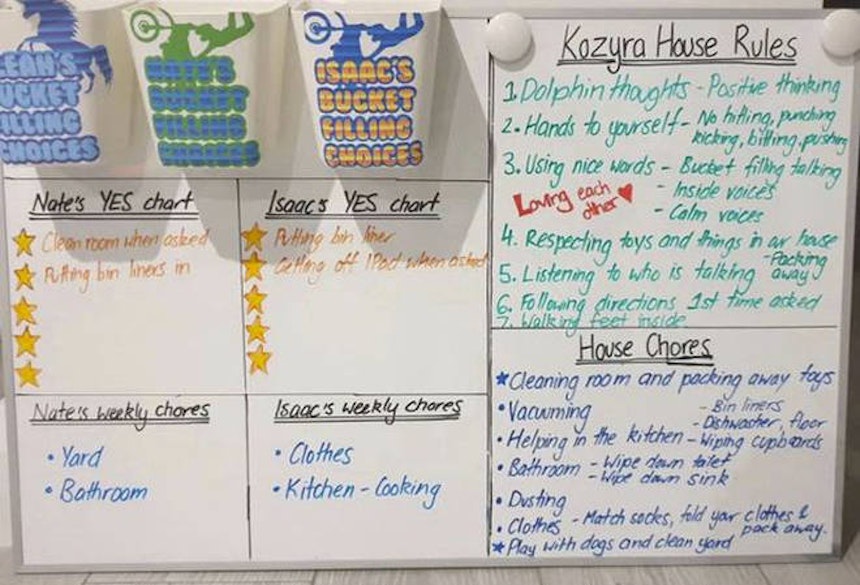 EAH'S
BUCKET
FILLING
CHOICES
NATE'S
BUCKET
FILLING
CHOICES
ISAAC'S
BUCKET
FILLING
CHOICES
Nate's YES chart
Clean room when asked
Putting bin liners in
Isaac's YES chart
Putting bin liner
Getting off IPad when asked
Nate's weekly chores
• Yard
• Bathroom
Isaac's weekly chores
• Clothes
• Kitchen - Cooking
Kozyra House Rules
1. Dolphin thoughts - Positive thinking
2. Hands to yourself - No hitting, punching
kicking, bitting, pushing
3. Using nice words - Bucket filling talking
- Inside voices
- Calm voices
Loving each
other ♥
4. Respecting toys and things in our house
- Packing
away
5. Listening to who is talking
6. Following directions 1st time asked
7. Walking feet inside
House Chores
* Cleaning room and packing away toys
• Vacuuming
• Helping in the kitchen - Bin liners
- Dishwasher, floor
- Wiping cupboards
• Bathroom - Wipe down toilet
- Wipe down sink
• Dusting
• Clothes - Match socks, fold your clothes &
pack away.
* Play with dogs and clean yard